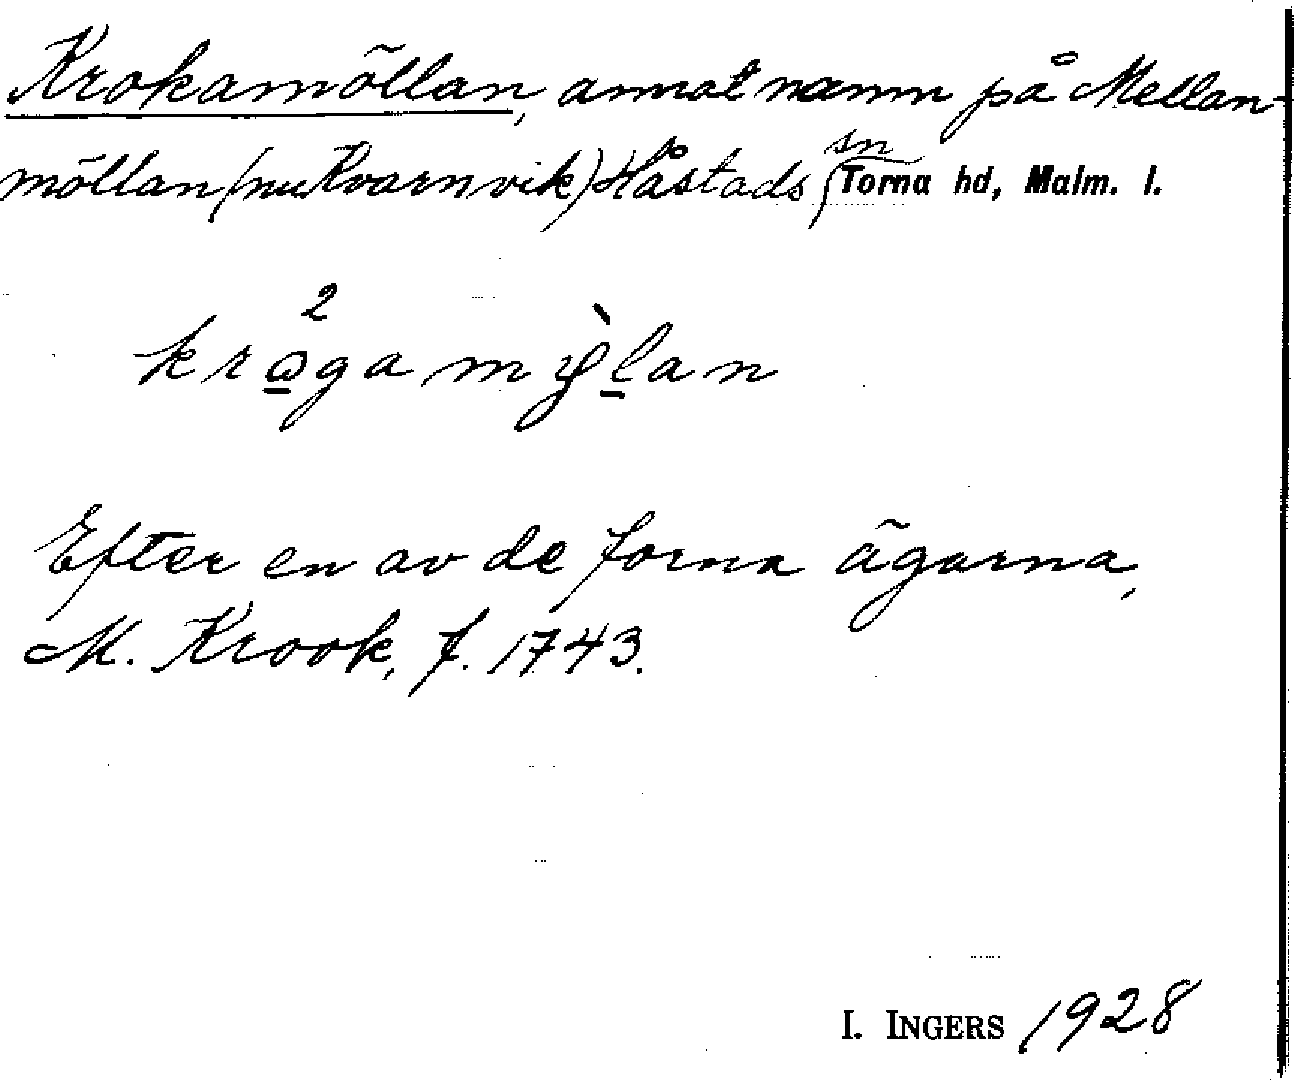 Krokamöllan, annat namn på Mellan-
möllan (nu Kvarnvik) Håstads sn Torna hd, Malm. l.
Efter en av de forna ägarna,
M. Krook, f. 1743.
I. INGERS 1928